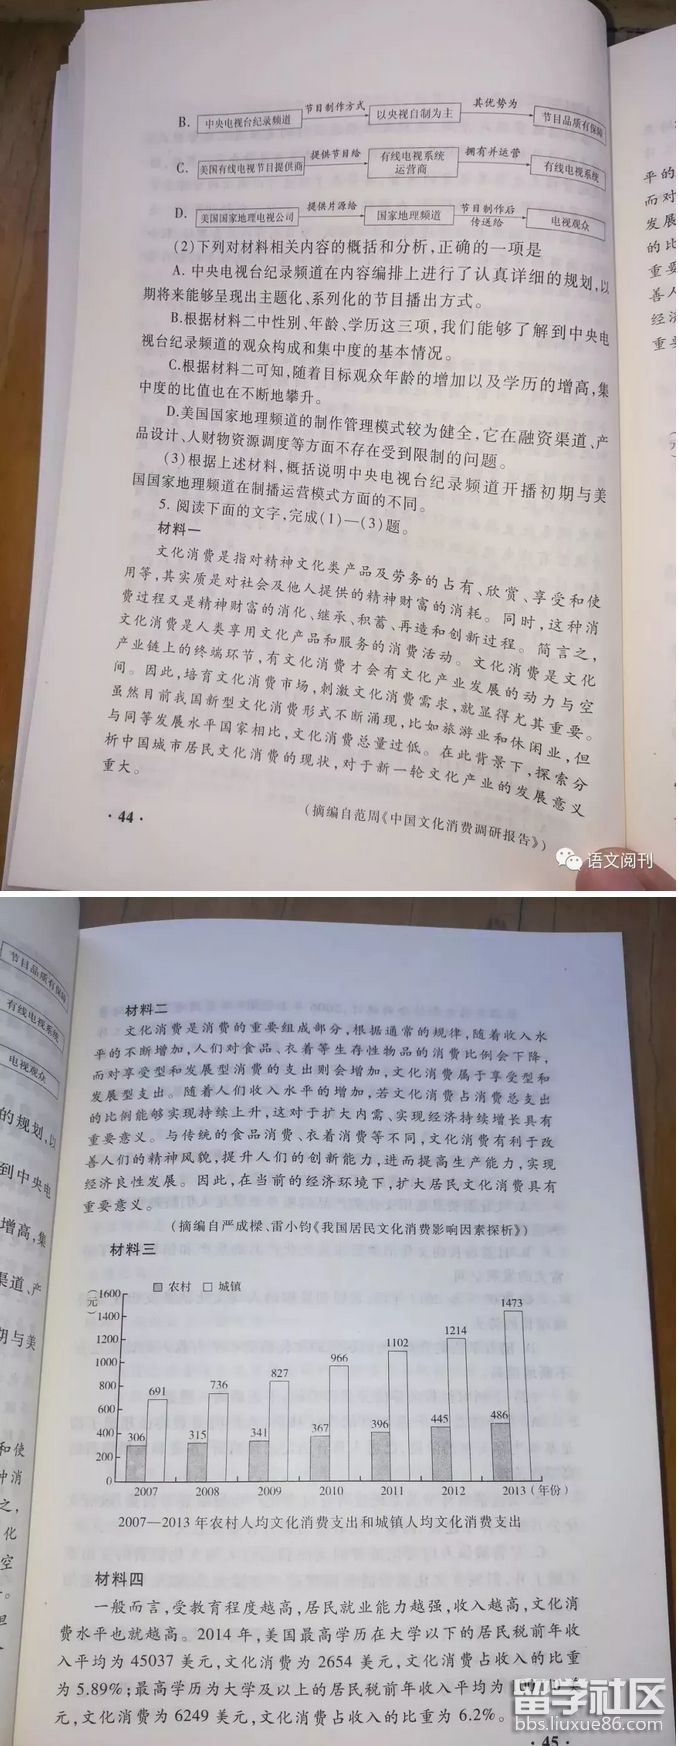 B. 中央电视台纪录频道 节目制作方式 以央视自制为主 其优势为 节目品质有保障
C. 美国有线电视节目提供商 提供节目给 有线电视系统运营商 拥有并运营 有线电视系统
D. 美国国家地理电视公司 提供片源给 国家地理频道 节目制作后传送给 电视观众
(2)下列对材料相关内容的概括和分析,正确的一项是
A. 中央电视台纪录频道在内容编排上进行了认真详细的规划,以
期将来能够呈现出主题化、系列化的节目播出方式。
B.根据材料二中性别、年龄、学历这三项,我们能够了解到中央电
视台纪录频道的观众构成和集中度的基本情况。
C.根据材料二可知,随着目标观众年龄的增加以及学历的增高,集
中度的比值也在不断地攀升。
D.美国国家地理频道的制作管理模式较为健全,它在融资渠道、产
品设计、人财物资源调度等方面不存在受到限制的问题。
(3)根据上述材料,概括说明中央电视台纪录频道开播初期与美
国国家地理频道在制播运营模式方面的不同。
5. 阅读下面的文字,完成(1)—(3)题。
材料一
文化消费是指对精神文化类产品及劳务的占有、欣赏、享受和使
用等,其实质是对社会及他人提供的精神财富的消耗。同时,这种消
费过程又是精神财富的消化、继承、积蓄、再造和创新过程。简言之,
文化消费是人类享用文化产品和服务的消费活动。文化消费是文化
产业链上的终端环节,有文化消费才会有文化产业发展的动力与空
间。因此,培育文化消费市场,刺激文化消费需求,就显得尤其重要。
虽然目前我国新型文化消费形式不断涌现,比如旅游业和休闲业,但
与同等发展水平国家相比,文化消费总量过低。在此背景下,探索分
析中国城市居民文化消费的现状,对于新一轮文化产业的发展意义
重大。
(摘编自范周《中国文化消费调研报告》)
· 44 ·
语文阅刊
平的
而对
发展
的比
重要
善人
经济
重要
节目品质有保障
有线电视系统
电视观众
的规划,以
到中央电
增高,集
渠道、产
期与美
和使
中消
之,
化
空
材料二
文化消费是消费的重要组成部分,根据通常的规律,随着收入水
平的不断增加,人们对食品、衣着等生存性物品的消费比例会下降,
而对享受型和发展型消费的支出则会增加,文化消费属于享受型和
发展型支出。随着人们收入水平的增加,若文化消费占消费总支出
的比例能够实现持续上升,这对于扩大内需、实现经济持续增长具有
重要意义。与传统的食品消费、衣着消费等不同,文化消费有利于改
善人们的精神风貌,提升人们的创新能力,进而提高生产能力,实现
经济良性发展。因此,在当前的经济环境下,扩大居民文化消费具有
重要意义。
(摘编自严成樑、雷小钧《我国居民文化消费影响因素探析》)
材料三
农村 城镇
(元)
1600
1400
1200
1000
800
600
400
200
0
306 691
315 736
341 827
367 966
396 1102
445 1214
486 1473
2007 2008 2009 2010 2011 2012 2013 (年份)
2007—2013 年农村人均文化消费支出和城镇人均文化消费支出
材料四
一般而言,受教育程度越高,居民就业能力越强,收入越高,文化消
费水平也就越高。2014 年,美国最高学历在大学以下的居民税前年收
入平均为 45037 美元,文化消费为 2654 美元,文化消费占收入的比重
为 5.89%;最高学历为大学及以上的居民税前年收入平均为 美
元,文化消费为 6249 美元,文化消费占收入的比重为 6.2%。
· 45 ·
留学社区
bbs.liuxue86.com